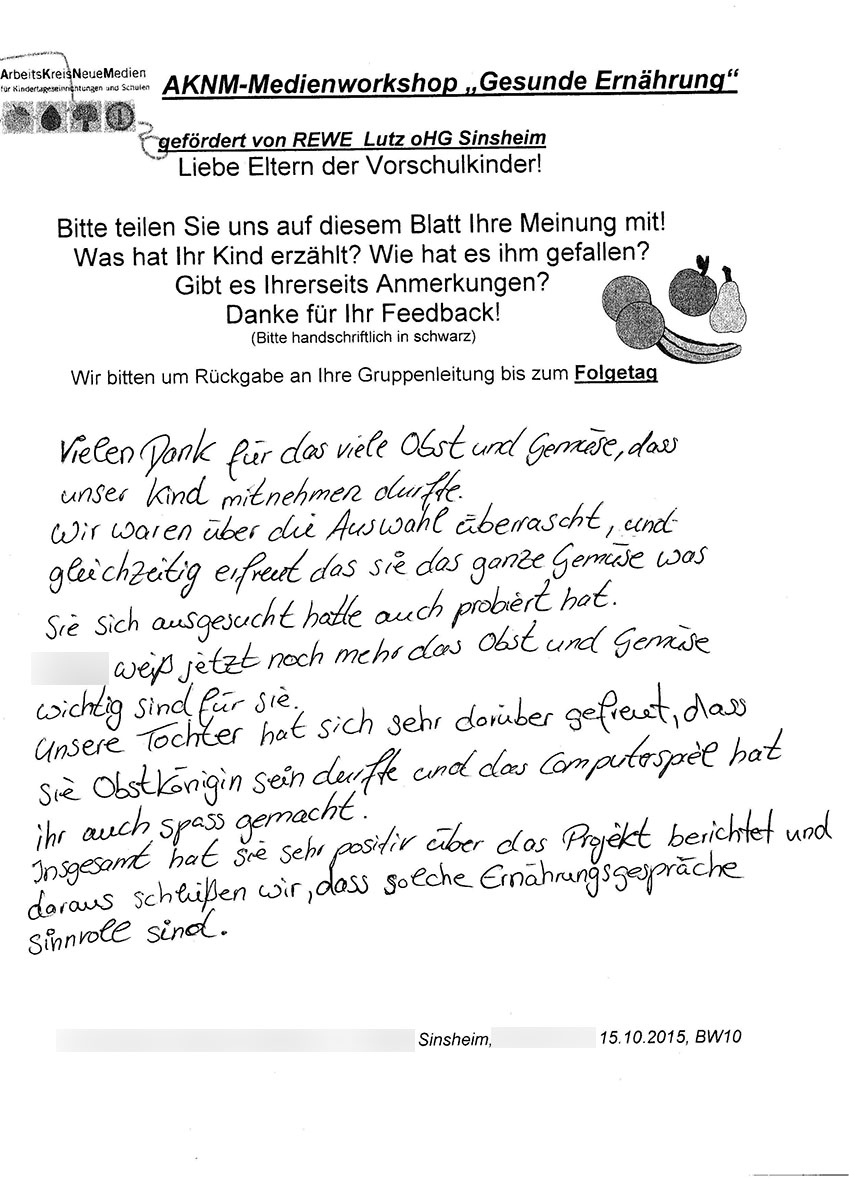 ArbeitsKreisNeueMedien
für Kindertageseinrichtungen und Schulen
AKNM-Medienworkshop „Gesunde Ernährung“
gefördert von REWE Lutz oHG Sinsheim
Liebe Eltern der Vorschulkinder!
Bitte teilen Sie uns auf diesem Blatt Ihre Meinung mit!
Was hat Ihr Kind erzählt? Wie hat es ihm gefallen?
Gibt es Ihrerseits Anmerkungen?
Danke für Ihr Feedback!
(Bitte handschriftlich in schwarz)
Wir bitten um Rückgabe an Ihre Gruppenleitung bis zum Folgetag
Vielen Dank für das viele Obst und Gemüse, dass
unser Kind mitnehmen durfte.
Wir waren über die Auswahl überrascht, und
gleichzeitig erfreut das sie das ganze Gemüse was
Sie sich ausgesucht hatte auch probiert hat.
weiß jetzt noch mehr das Obst und Gemüse
wichtig sind für sie.
Unsere Tochter hat sich sehr darüber gefreut, dass
sie Obstkönigin sein durfte und das Computespiel hat
ihr auch spass gemacht.
Insgesamt hat sie sehr positiv über das Projekt berichtet und
daraus schließen wir, dass solche Ernährungsgespräche
Sinnvoll sind.
Sinsheim, 15.10.2015, BW10